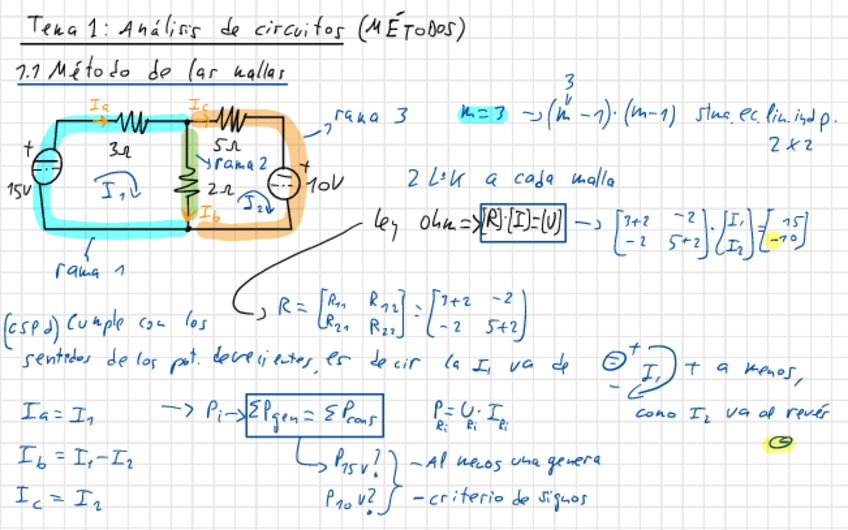 Tema 1: Análisis de circuitos (MÉTODOS)
1.1 Método de las mallas
Ia Ic
3Ω 5Ω
rama 3
+ 15V
I1
rama 2
2Ω
I2
+ 10V
Ib
rama 1
3
m=3 → (m-1)·(m-1) stma. ec. lin. indp.
2x2
2 LIK a cada malla
ley Ohm => [R]·[I]=[U] → [3+2 -2 -2 5+2]·[I1 I2]=[15 -10]
R = [R11 R12 R21 R22] = [3+2 -2 -2 5+2]
(CSPD) Cumple con los
sentidos de los pot. decrecientes, es decir la I1 va de + - I1 + a menos,
como I2 va al revés
⊖
Ia = I1 → Pi → ΣPgen = ΣPcons PRi = URi · IRi
Ib = I1 - I2 P15V? - Al menos una genera
Ic = I2 P10V? - criterio de signos